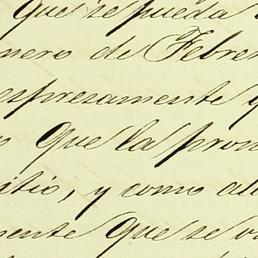 que se pueda
nero de Febre
espresamente q
o que la pron
itio, y como al
mente que se o